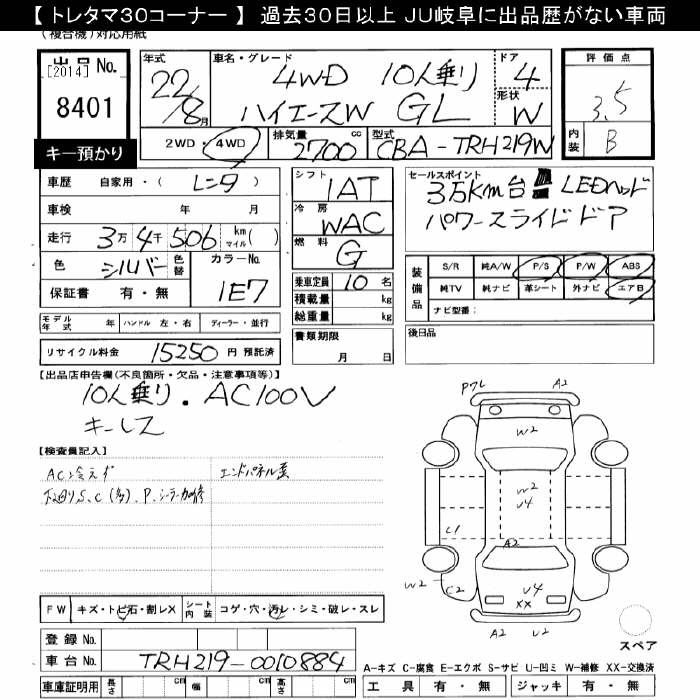 【 トレタマ30コーナー 】 過去30日以上 JU岐阜に出品歴がない車両
(複合機)対応用紙
出品 No.
[2014]
8401
キー預かり
年式 22/8月
車名・グレード 4WD 10人乗り
ハイエースW GL
ドア 4
形状 W
評価点 3.5
内装 B
2WD・4WD 排気量 2700 cc 型式 CBA-TRH219W
車歴 自家用・( レンタ )
車検 年 月
走行 3万 4千 506 km マイル ( )
色 シルバー 色替 カラーNo. 1E7
保証書 有・無
シフト 1AT
冷房 WAC
燃料 G
乗車定員 10 名
積載量 kg
総重量 kg
書類期限
月 日
セールスポイント
3万km台 LEDヘッド
パワースライドドア
装備品 S/R 純A/W P/S P/W ABS
純TV 純ナビ 革シート 外ナビ エアB
ナビ型番:
後日品
モデル年式 年 ハンドル 左・右 ディーラー・並行
リサイクル料金 15250 円 預託済
【出品店申告欄(不良箇所・欠品・注意事項等)】
10人乗り . AC100V
キーレス
【検査員記入】
AC冷えず
下廻りS、C(多)、P、シーラー補修
エンドパネル歪
P7L A2
W2
W2
U4
C1
A2
W2 C2
U4
XX
A2 U2
スペア
FW キズ・トビ石・割レX シート内装 コゲ・穴・汚レ・シミ・破レ・スレ
登録 No.
車台 No. TRH219-0010884
車庫証明用 長さ cm 幅 cm 高さ cm
A-キズ C-腐食 E-エクボ S-サビ U-凹ミ W-補修 XX-交換済
工具 有・無 ジャッキ 有・無